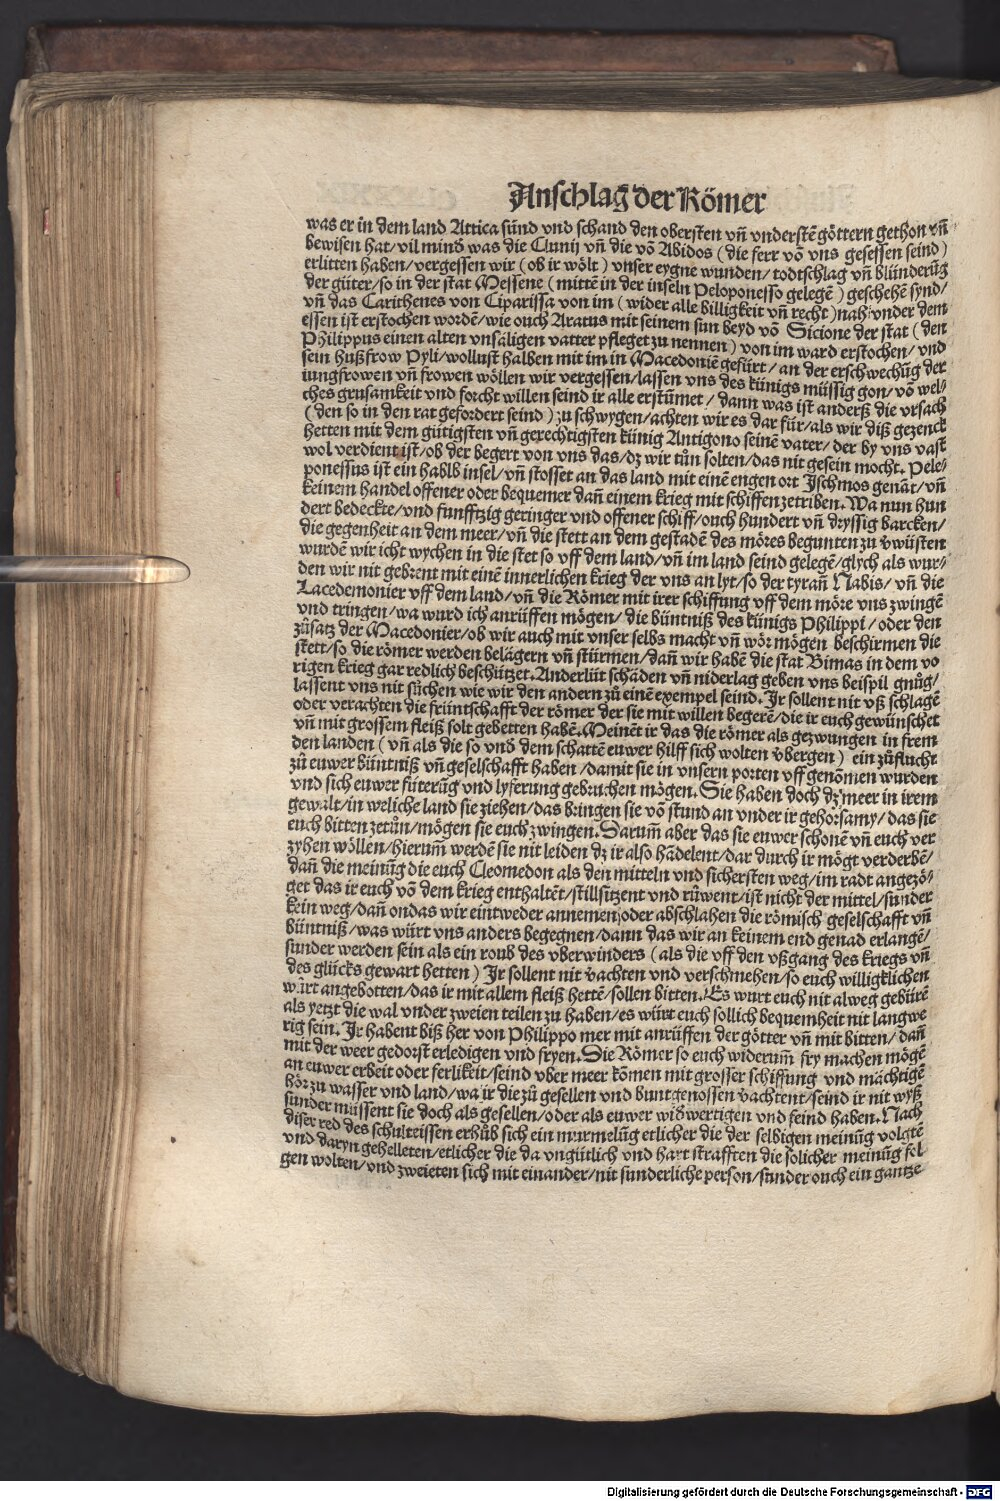 Anschlag der Römer
was er in dem land Attica sünd vnd schand den obersten vñ vnderstē göttern gethon vñ
bewisen hat/vil mind was die Clunij vñ die vō Abidos (die ferr vō vns gesessen seind)
erlitten haben/vergessen wir (ob ir wölt) vnser eygne wunden/todtschlag vñ blünderūg
der güter/so in der stat Messene (mittē in der inseln Peloponesso gelegē) geschehē synd/
vñ das Carithenes von Ciparissa von im (wider alle billigkeit vñ recht) nah vnder dem
essen ist erstochen wordē/wie ouch Aratus mit seinem sun beyd vō Sicione der stat (den
Philippus einen alten vnsäligen vatter pfleget zu nennen) von im ward erstochen/vnd
sein hußfrow Pyli/wollust halben mit im in Macedoniē gefürt/an der erschwechūg der
iungfrowen vñ frowen wöllen wir vergessen/lassen vns des künigs müssig gon/vō wel-
ches grusamkeit vnd forcht willen seind ir alle erstümet/dann was ist anderß die vrsach
(den so in den rat gefordert seind) zu schwygen/achten wir es dar für/als wir diß gezenck
hetten mit dem gütigsten vñ gerechtigsten künig Antigono seinē vater/der by vns vast
wol verdient ist/ob der begert von vns das/dz wir tün solten/das nit gesein mocht. Pele-
ponessus ist ein hablb insel/vñ stosset an das land mit einē engen ort Ischmos genāt/vñ
keinem handel offener oder bequemer dañ einem krieg mit schiffen zetriben. Wa nun hun
dert bedeckte/vnd funfftzig geringer vnd offener schiff/ouch hundert vñ dryssig barcken/
die gegenheit an dem meer/vñ die stett an dem gestadē des möres begunten zu v̈wüsten
wurdē wir icht wychen in die stet so vff dem land/vñ im land seind gelegē/glych als wur-
den wir nit gebrent mit einē innerlichen krieg der vns an lyt/so der tyrañ Nabis/vñ die
Lacedemonier vff dem land/vñ die Römer mit irer schiffung vff dem möre vns zwingē
vnd tringen/wa wurd ich anrüffen mögen/die büntniß des künigs Philippi/oder den
zůsatz der Macedonier/ob wir auch mit vnser selbs macht vñ wör mögen beschirmen die
stett/so die römer werden belägern vñ stürmen/dañ wir habē die stat Bimas in dem vo
rigen krieg gar redlich beschützet. Anderlüt schäden vñ niderlag geben vns beispil gnůg/
lassent vns nit süchen wie wir den andern zů einē exempel seind. Ir sollent nit vß schlagē
oder verachten die früntschafft der römer der sie mit willen begerē/die ir euch gewünschet
vñ mit grossem fleiß solt gebetten habē. Meinēt ir das die römer als gezwungen in frem
den landen (vñ als die so vnď dem schattē euwer hilff sich wolten v̈bergen) ein zůflucht
zů euwer büntniß vñ geselschafft haben/damit sie in vnsern porten vff genōmen wurden
vnd sich euwer füterūg vnd lyferung gebruchen mögen. Sie haben doch dz meer in irem
gewalt/in weliche land sie ziehen/das bringen sie vō stund an vnder ir gehorsamy/das sie
euch bitten zetůn/mögen sie euch zwingen. Darum̄ aber das sie euwer schonē vñ euch ver
zyhen wöllen/hierum̄ werdē sie nit leiden dz ir also hādelent/dar durch ir mögt verderbē/
dañ die meinūg die euch Cleomedon als den mitteln vnd sichersten weg/im radt angezö-
get das ir euch vō dem krieg enthaltēt/stillsitzent vnd růwent/ist nicht der mittel/sunder
kein weg/dañ on das wir eintweder annemen oder abschlahen die römisch geselschafft vñ
büntniß/was würt vns anders begegnen/dann das wir an keinem end genad erlangē/
sunder werden sein als ein roub des vberwinders (als die vff den vßgang des kriegs vñ
des glücks gewart hetten) Ir sollent nit v̈achten vnd verschmehen/so euch willigklichen
würt angebotten/das ir mit allem fleiß hettē/sollen bitten. Es wurt euch nit alweg gebürē
als yetzt die wal vnder zweien teilen zu haben/es würt euch sollich bequemheit nit langwe
rig sein. Ir habent biß her von Philippo mer mit anrüffen der götter vñ mit bitten/dañ
mit der weer gedorst erledigen vnd fryen. Die Römer so euch widerum̄ fry machen mögē
an euwer erbeit oder ferlikeit/seind vber meer kōmen mit grosser schiffung vnd mächtigē
hör zu wasser vnd land/wa ir die zů gesellen vnd buntgenossen v̈achtent/seind ir nit wyß
sunder müssent sie doch als gesellen/oder als euwer wiďwertigen vnd feind haben. Nach
diser red des schulteissen erhůb sich ein murmelūg etlicher die der selbigen meinūg volgtē
vnd daryn gehelleten/etlicher die da vngütlich vnd hart strafften die solicher meinūg fol-
gen wolten/vnd zweieten sich mit einander/nit sunderliche person/sunder ouch ein gantze
Digitalisierung gefördert durch die Deutsche Forschungsgemeinschaft - DFG